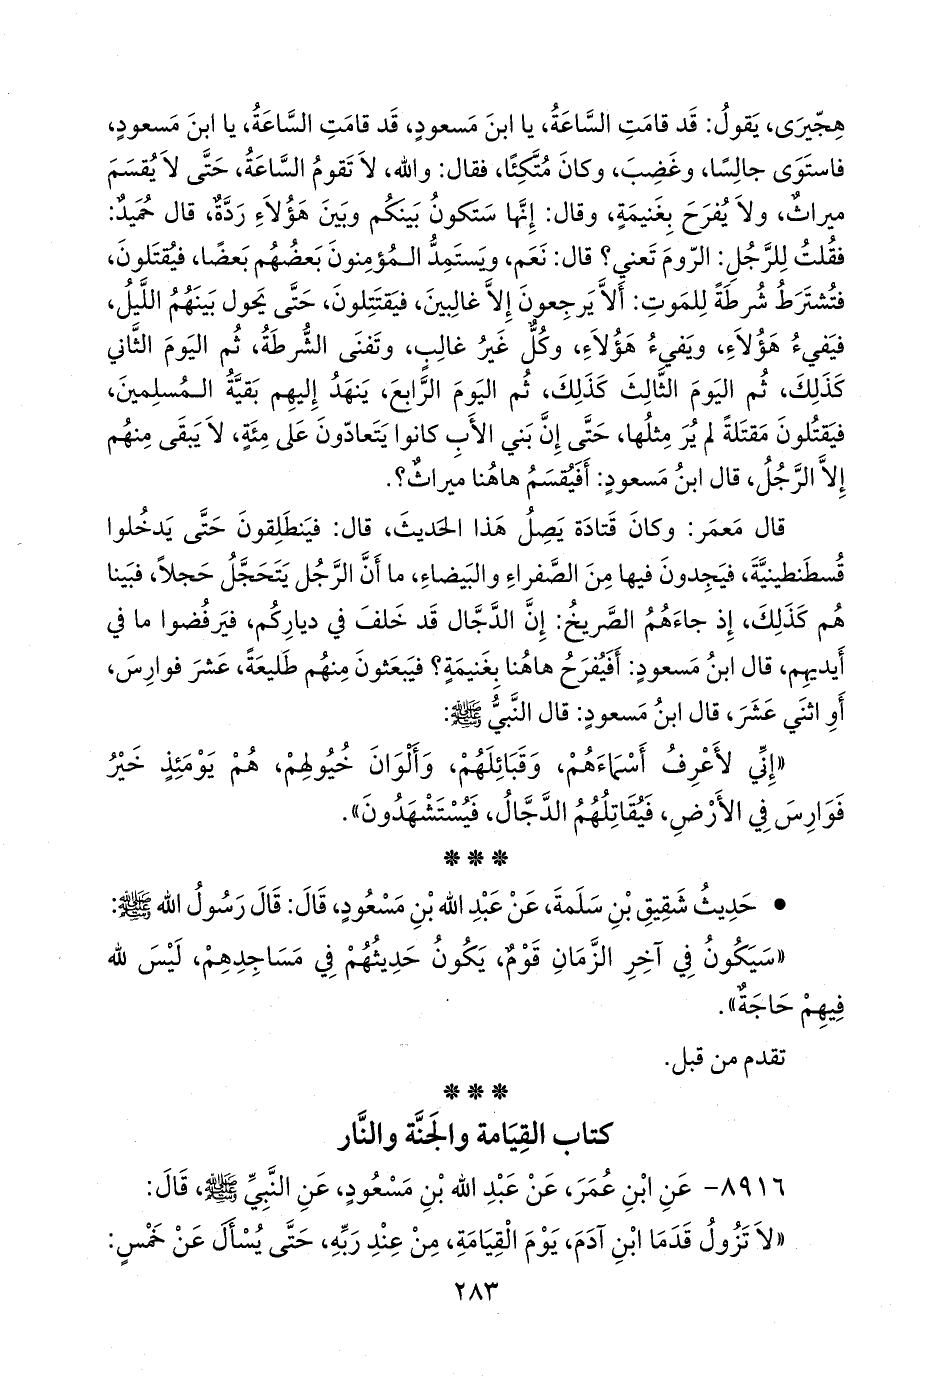 هِجِّيرَى، يَقولُ: قَد قامَتِ السَّاعَةُ، يا ابنَ مَسعودٍ، قَد قامَتِ السَّاعَةُ، يا ابنَ مَسعودٍ،
فاستَوَى جالِسًا، وغَضِبَ، وكانَ مُتَّكِئًا، فقال: والله، لاَ تَقومُ السَّاعَةُ، حَتَّى لاَ يُقسَمَ
ميراثٌ، ولاَ يُفرَحَ بِغَنيمَةٍ، وقال: إِنَّها سَتَكونُ بَينَكُم وبَينَ هَؤُلاَءِ رَدَّةٌ، قال حُمَيدٌ:
فقُلتُ لِلرَّجُلِ: الرّومَ تَعني؟ قال: نَعَم، ويَستَمِدُّ الـمُؤمِنونَ بَعضُهُم بَعضًا، فيُقتَلونَ،
فتُشتَرَطُ شُرطَةً لِلمَوتِ: أَلاَّ يَرجِعونَ إِلاَّ غالِبينَ، فيَقتَتِلونَ، حَتَّى يَحول بَينَهُمُ اللَّيلُ،
فيَفيءُ هَؤُلاَءِ، ويَفيءُ هَؤُلاَءِ، وكُلٌّ غَيرُ غالِبٍ، وتَفنَى الشُّرطَةُ، ثُم اليَومَ الثَّاني
كَذَلِكَ، ثُم اليَومَ الثَّالِثَ كَذَلِكَ، ثُم اليَومَ الرَّابِعَ، يَنهَدُ إِليهِم بَقيَّةُ الـمُسلِمينَ،
فيَقتُلونَ مَقتَلَةً لم يُرَ مِثلُها، حَتَّى إِنَّ بَني الأَبِ كانوا يَتَعادّونَ عَلى مِئَةٍ، لاَ يَبقَى مِنهُم
إِلاَّ الرَّجُلُ، قال ابنُ مَسعودٍ: أَفَيُقسَمُ هاهُنا ميراثٌ؟.
قال مَعمَر: وكانَ قَتادَة يَصِلُ هَذا الحَديثَ، قال: فيَنطَلِقونَ حَتَّى يَدخُلوا
قُسطَنطينيَّةَ، فيَجِدونَ فيها مِنَ الصَّفراءِ والبَيضاءِ، ما أَنَّ الرَّجُل يَتَحَجَّلُ حَجلاً، فبَينا
هُم كَذَلِكَ، إِذ جاءَهُمُ الصَّريخُ: إِنَّ الدَّجَّال قَد خَلفَ في ديارِكُم، فيَرفُضوا ما في
أَيديهِم، قال ابنُ مَسعودٍ: أَفَيُفرَحُ هاهُنا بِغَنيمَةٍ؟ فيَبعَثونَ مِنهُم طَليعَةً، عَشرَ فوارِسَ،
أَوِ اثنَي عَشَرَ، قال ابنُ مَسعودٍ: قال النَّبيُّ ﷺ:
«إِنِّي لأَعْرِفُ أَسْمَاءَهُمْ، وَقَبَائِلَهُمْ، وَأَلْوَانَ خُيُولِهِمْ، هُمْ يَوْمَئِذٍ خَيْرُ
فَوَارِسَ فِي الأَرْضِ، فَيُقَاتِلُهُمُ الدَّجَّالُ، فَيُسْتَشْهَدُونَ».
* * *
• حَدِيثُ شَقِيقِ بْنِ سَلَمةَ، عَنْ عَبْدِ الله بْنِ مَسْعُودٍ، قَالَ: قَالَ رَسُولُ الله ﷺ:
«سَيَكُونُ فِي آخِرِ الزَّمَانِ قَوْمٌ، يَكُونُ حَدِيثُهُمْ فِي مَسَاجِدِهِمْ، لَيْسَ لله
فِيهِمْ حَاجَةٌ».
تقدم من قبل.
* * *
كتاب القِيَامة والجَنَّة والنَّار
٨٩١٦- عَنِ ابْنِ عُمَرَ، عَنْ عَبْدِ الله بْنِ مَسْعُودٍ، عَنِ النَّبِيِّ ﷺ، قَالَ:
«لاَ تَزُولُ قَدَمَا ابْنِ آدَمَ، يَوْمَ الْقِيَامَةِ، مِنْ عِنْدِ رَبِّهِ، حَتَّى يُسْأَلَ عَنْ خَمْسٍ:
٢٨٣